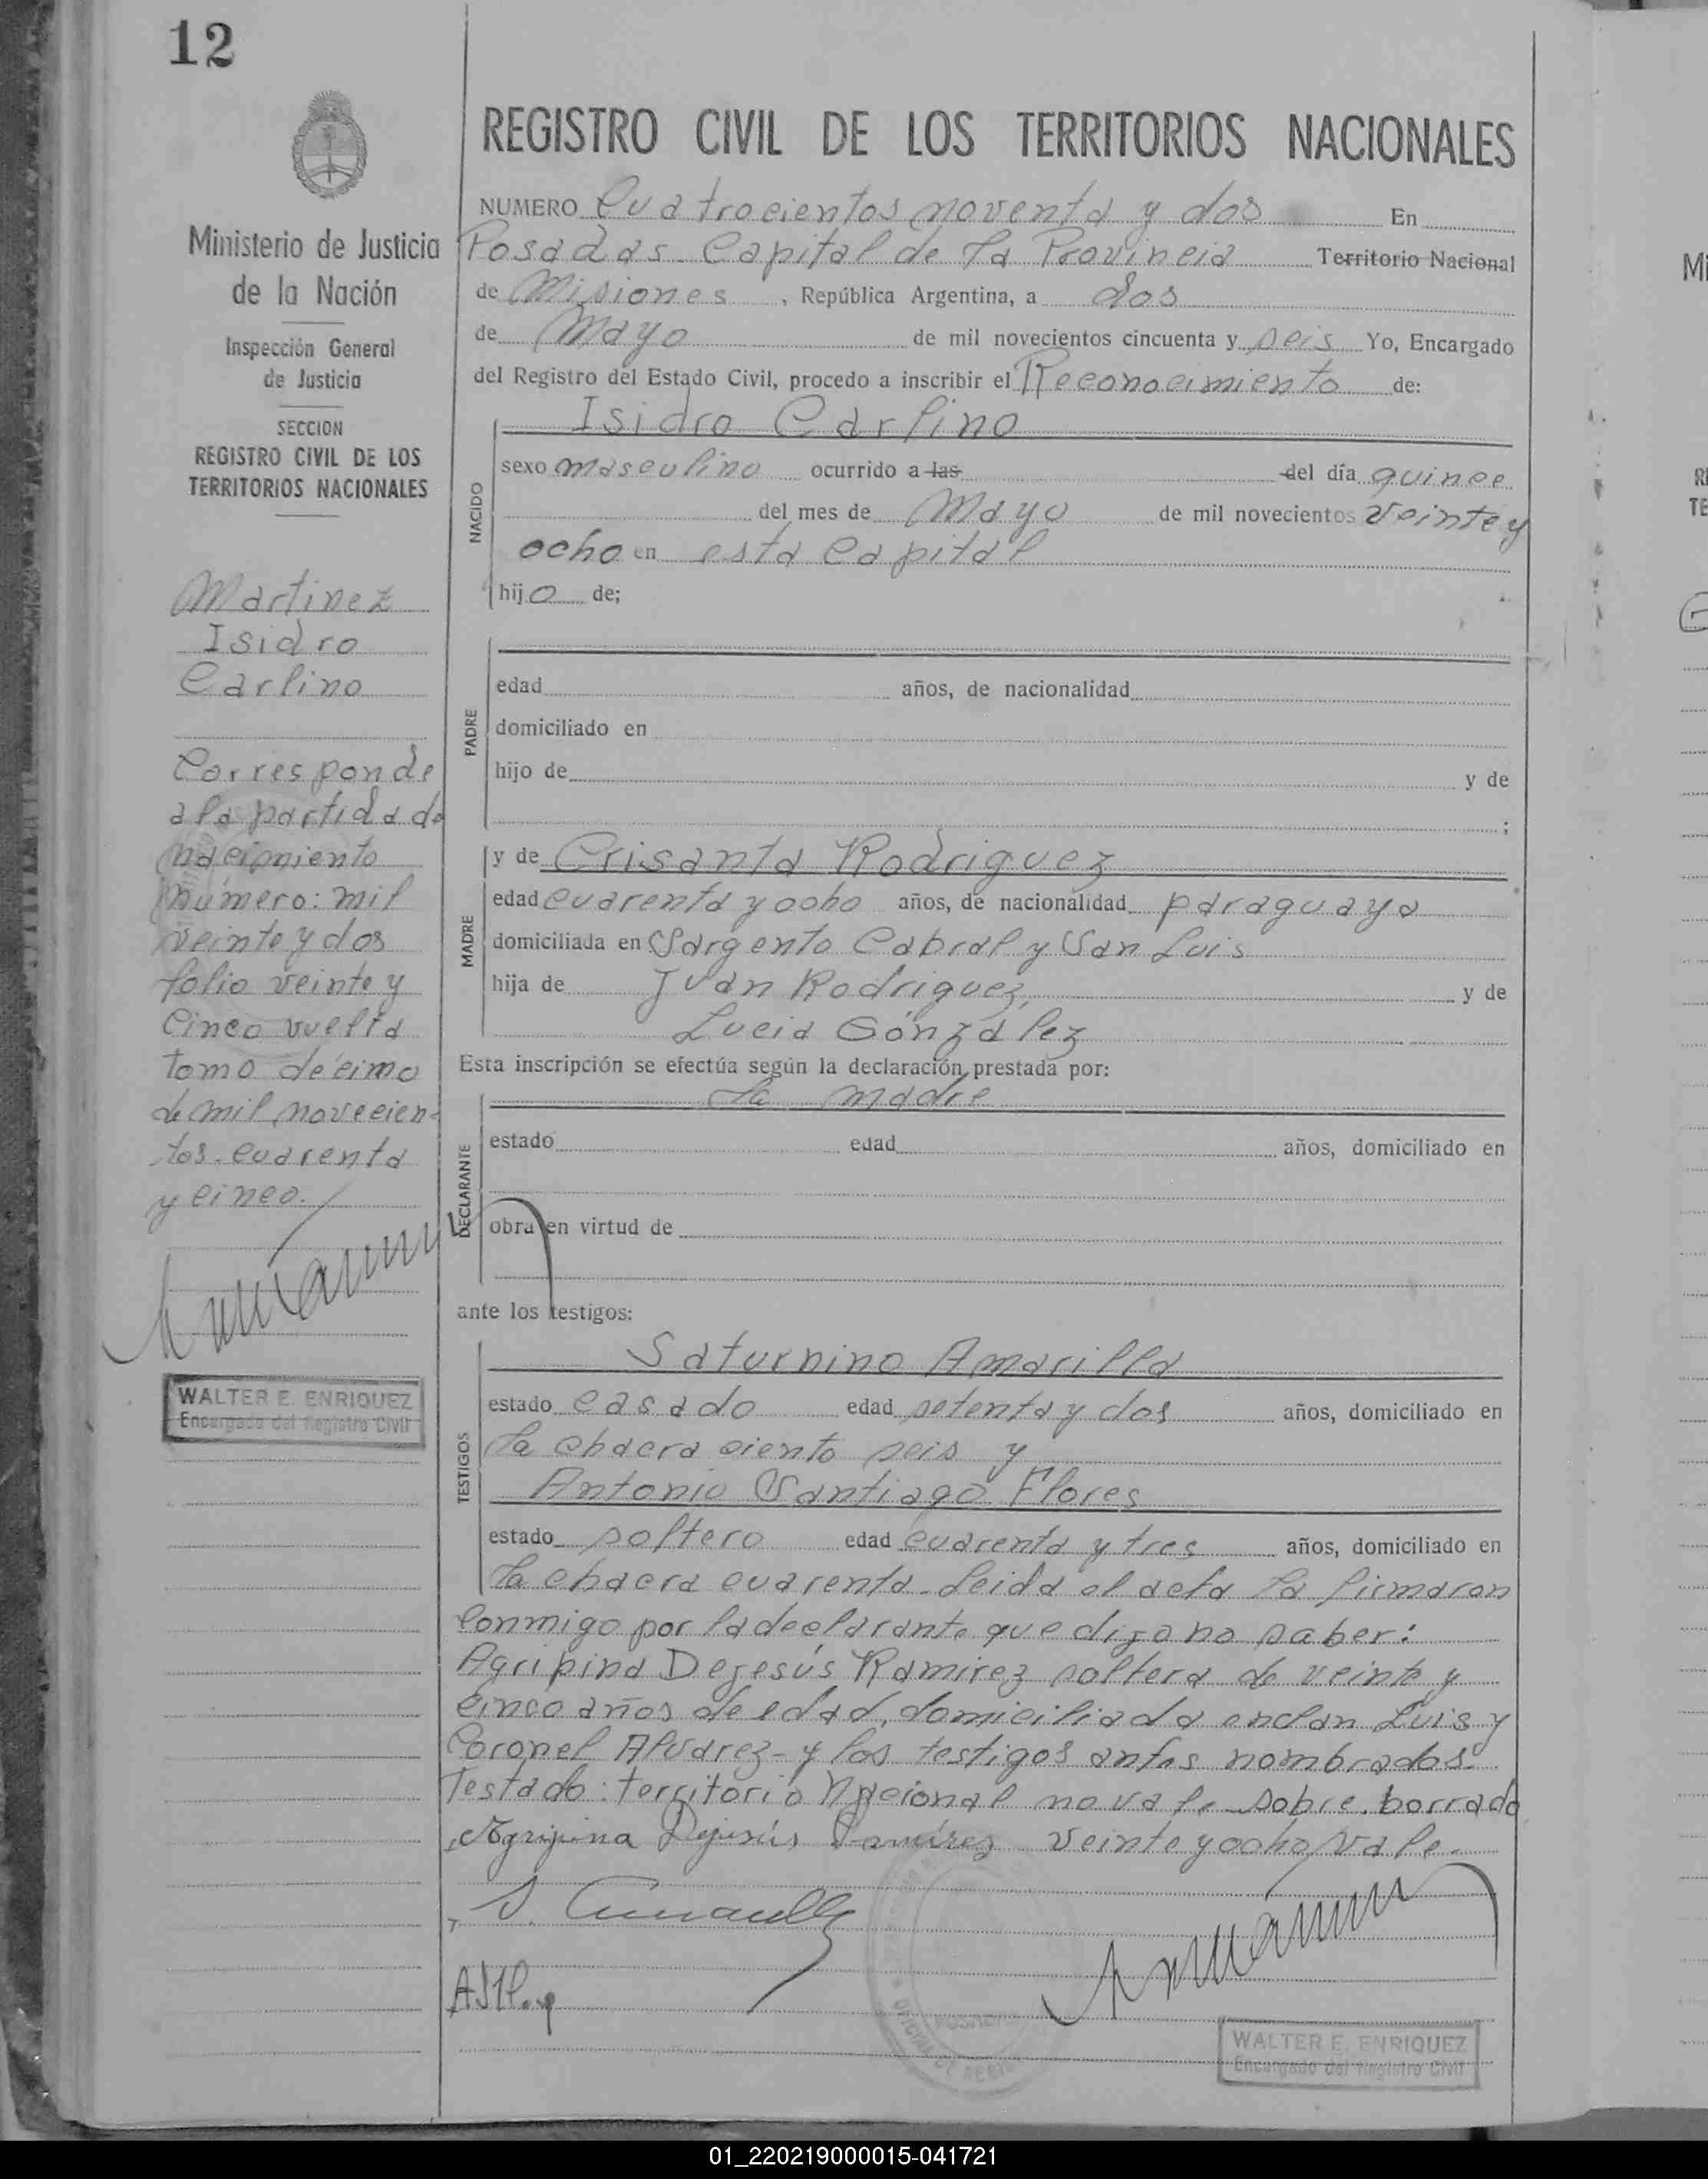 12
Ministerio de Justicia
de la Nación
Inspección General
de Justicia
SECCION
REGISTRO CIVIL DE LOS
TERRITORIOS NACIONALES
Martinez
Isidro
Carlino
Corresponde
a la partida de
nacimiento
número: mil
veinte y dos
folio veinte y
cinco vuelta
tomo décimo
de mil novecien-
tos cuarenta
y cinco.
WALTER E. ENRIQUEZ
Encargado del Registro Civil
REGISTRO CIVIL DE LOS TERRITORIOS NACIONALES
NUMERO Cuatrocientos noventa y dos En
Posadas Capital de la Provincia Territorio Nacional
de Misiones, República Argentina, a dos
de Mayo de mil novecientos cincuenta y seis Yo, Encargado
del Registro del Estado Civil, procedo a inscribir el Reconocimiento de:
NACIDO
Isidro Carlino
sexo masculino ocurrido a las del día quince
del mes de Mayo de mil novecientos veinte y
ocho en esta Capital
hijo de;
PADRE
edad años, de nacionalidad
domiciliado en
hijo de y de
;
MADRE
y de Crisanta Rodriguez
edad cuarenta y ocho años, de nacionalidad paraguaya
domiciliada en Sargento Cabral y San Luis
hija de Juan Rodriguez, y de
Lucia Gónzález
Esta inscripción se efectúa según la declaración prestada por:
DECLARANTE
la madre
estado edad años, domiciliado en
obra en virtud de
ante los testigos:
TESTIGOS
Saturnino Amarilla
estado casado edad setenta y dos años, domiciliado en
la chacra ciento seis y
Antonio Santiago Flores
estado soltero edad cuarenta y tres años, domiciliado en
la chacra cuarenta. Leida el acta la firmaron
conmigo por la declarante que dijo no saber:
Agripina Dejesús Ramirez soltera de veinte y
cinco años de edad, domiciliada en San Luis y
Coronel Alvarez - y los testigos antes nombrados.
Testado: territorio Nacional no vale. Sobre borrado
Agripina Dejesús Ramírez veinte y ocho, vale.
WALTER E. ENRIQUEZ
Encargado del Registro Civil
01_220219000015-041721